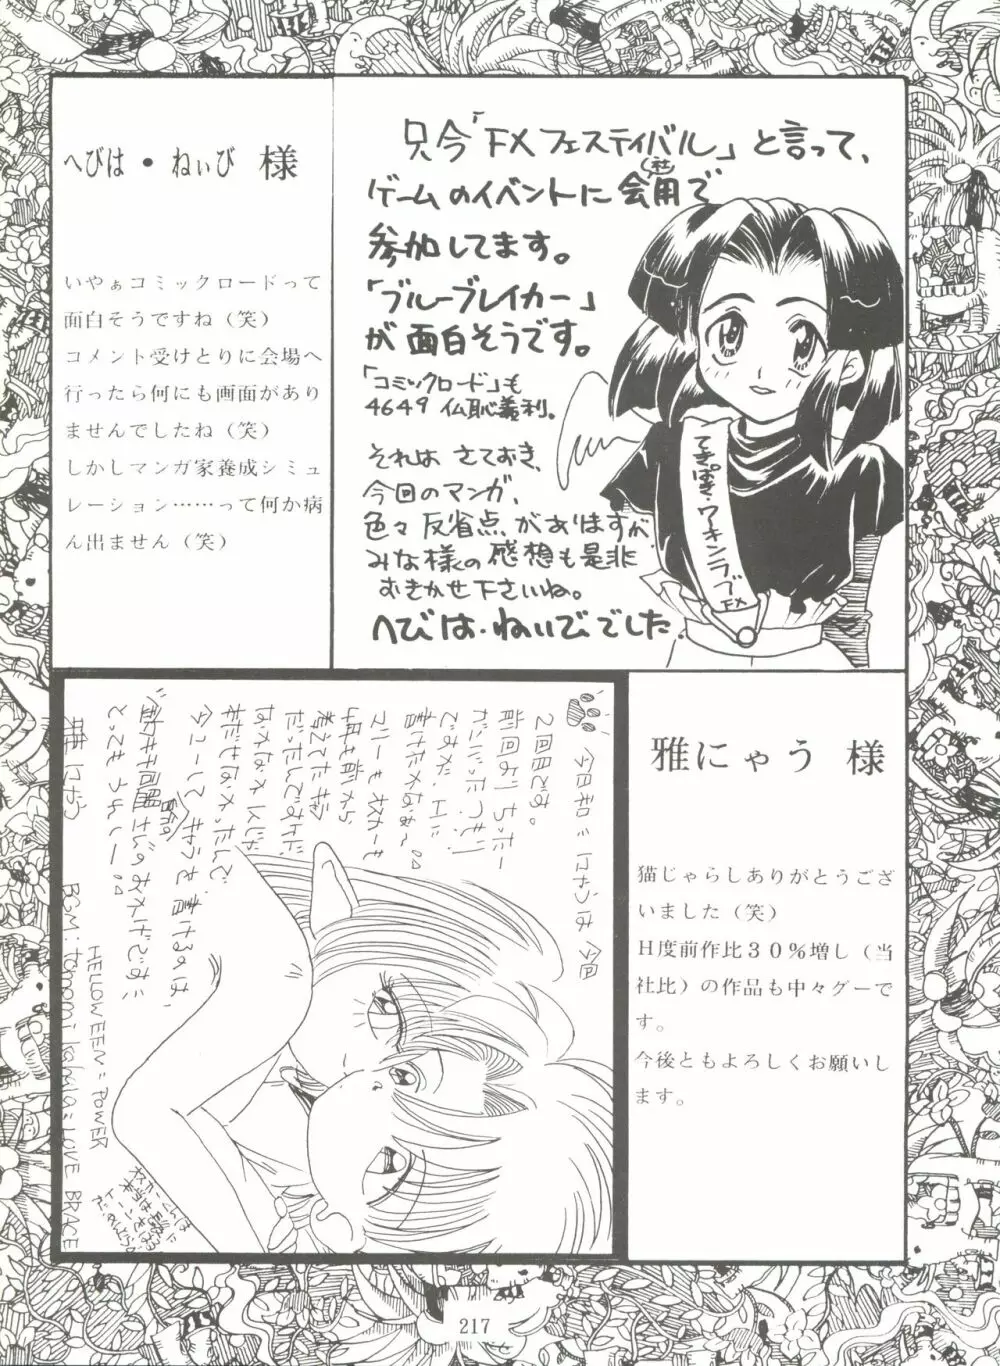 へびは・ねぃび 様
いやぁコミックロードって
面白そうですね（笑）
コメント受けとりに会場へ
行ったら何にも画面があり
ませんでしたね（笑）
しかしマンガ家養成シミュ
レーション……って何か病
ん出ません（笑）
只今「FXフェスティバル」と言って、
ゲームのイベントに会用で
（社）
参加してます。
「ブルーブレイカー」
が面白そうです。
「コミックロード」も
4649 仏恥義利。
それはさておき、
今回のマンガ、
色々反省点がありますが
みな様の感想も是非
おきかせ下さいね。
へびは・ねいびでした
てきぱき・ワーキンラブ
FX
雅にゃう 様
猫じゃらしありがとうござ
いました（笑）
H度前作比30％増し（当
社比）の作品も中々グーで
す。
今後ともよろしくお願いし
ます。
今日和ニにゃうは今回
2回目です。
前回よりちったー
ですが、Hに
書けたかなぁ〜。
4頁も前から
考えてたネタ
だったんですけど
なかなかえんじゃ
とってもうれしー
雅にゃう
HELLOWEEN=POWER
BGM:tomomi kahala=LOVE BRACE
217